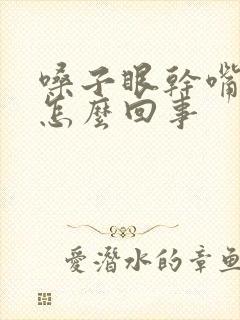 嗓子眼幹嘴
怎麼回事
愛潛水的章魚